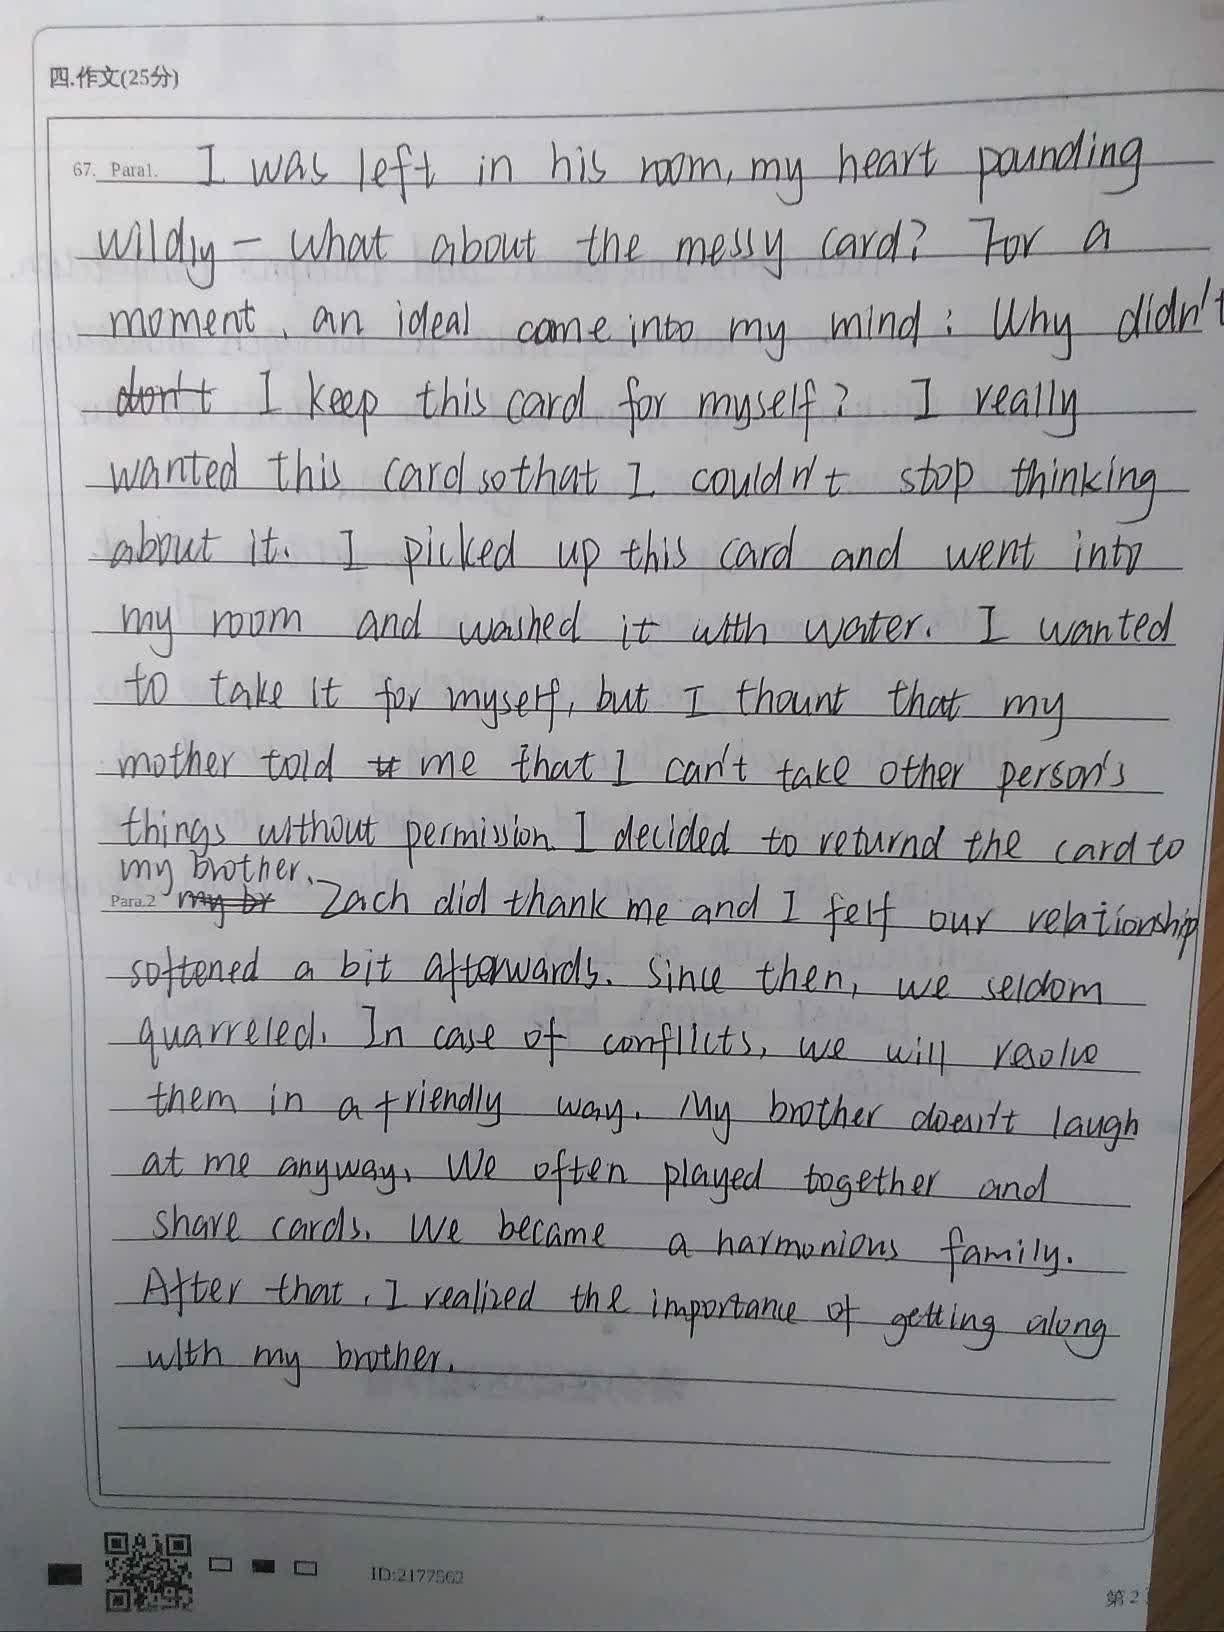 四.作文(25分)
67. Para1. I was left in his room, my heart pounding
wildly – what about the messy card? For a
moment, an ideal came into my mind: Why didn't
I keep this card for myself? I really
wanted this card so that I couldn't stop thinking
about it. I picked up this card and went into
my room and washed it with water. I wanted
to take it for myself, but I thount that my
mother told me that I can't take other person's
things without permission. I decided to returnd the card to
my brother.
Para.2 Zach did thank me and I felt our relationship
softened a bit afterwards. Since then, we seldom
quarreled. In case of conflicts, we will resolve
them in a friendly way. My brother doesn't laugh
at me anyway. We often played together and
share cards. We became a harmonious family.
After that, I realized the importance of getting along
with my brother.
ID:2177562
第2